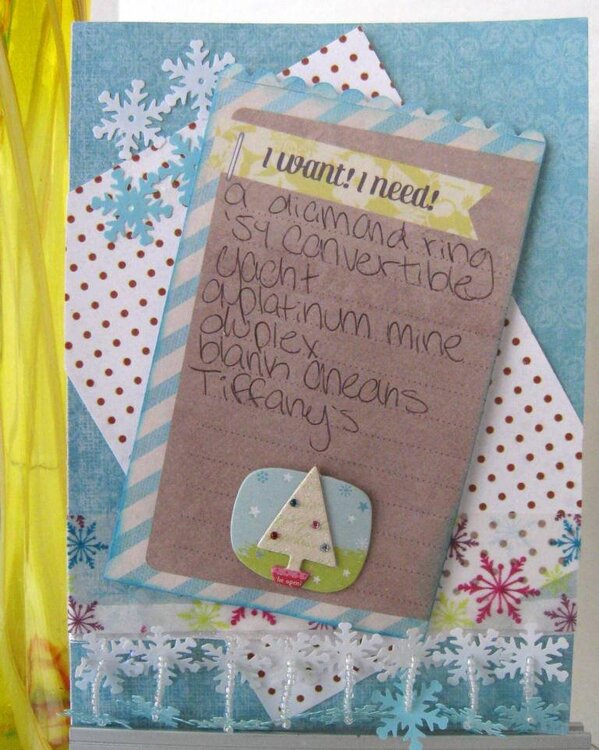 I want! I need!
a diamond ring
'54 convertible
yacht
a platinum mine
duplex
blank checks
Tiffany's
be open!